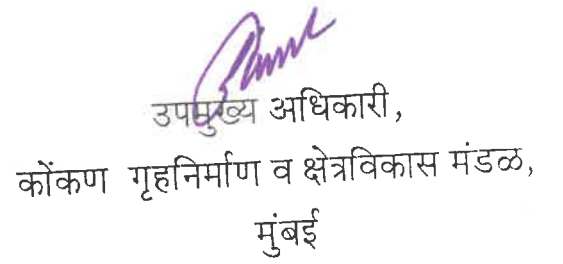 उपमुख्य अधिकारी,
कोंकण गृहनिर्माण व क्षेत्रविकास मंडळ,
मुंबई